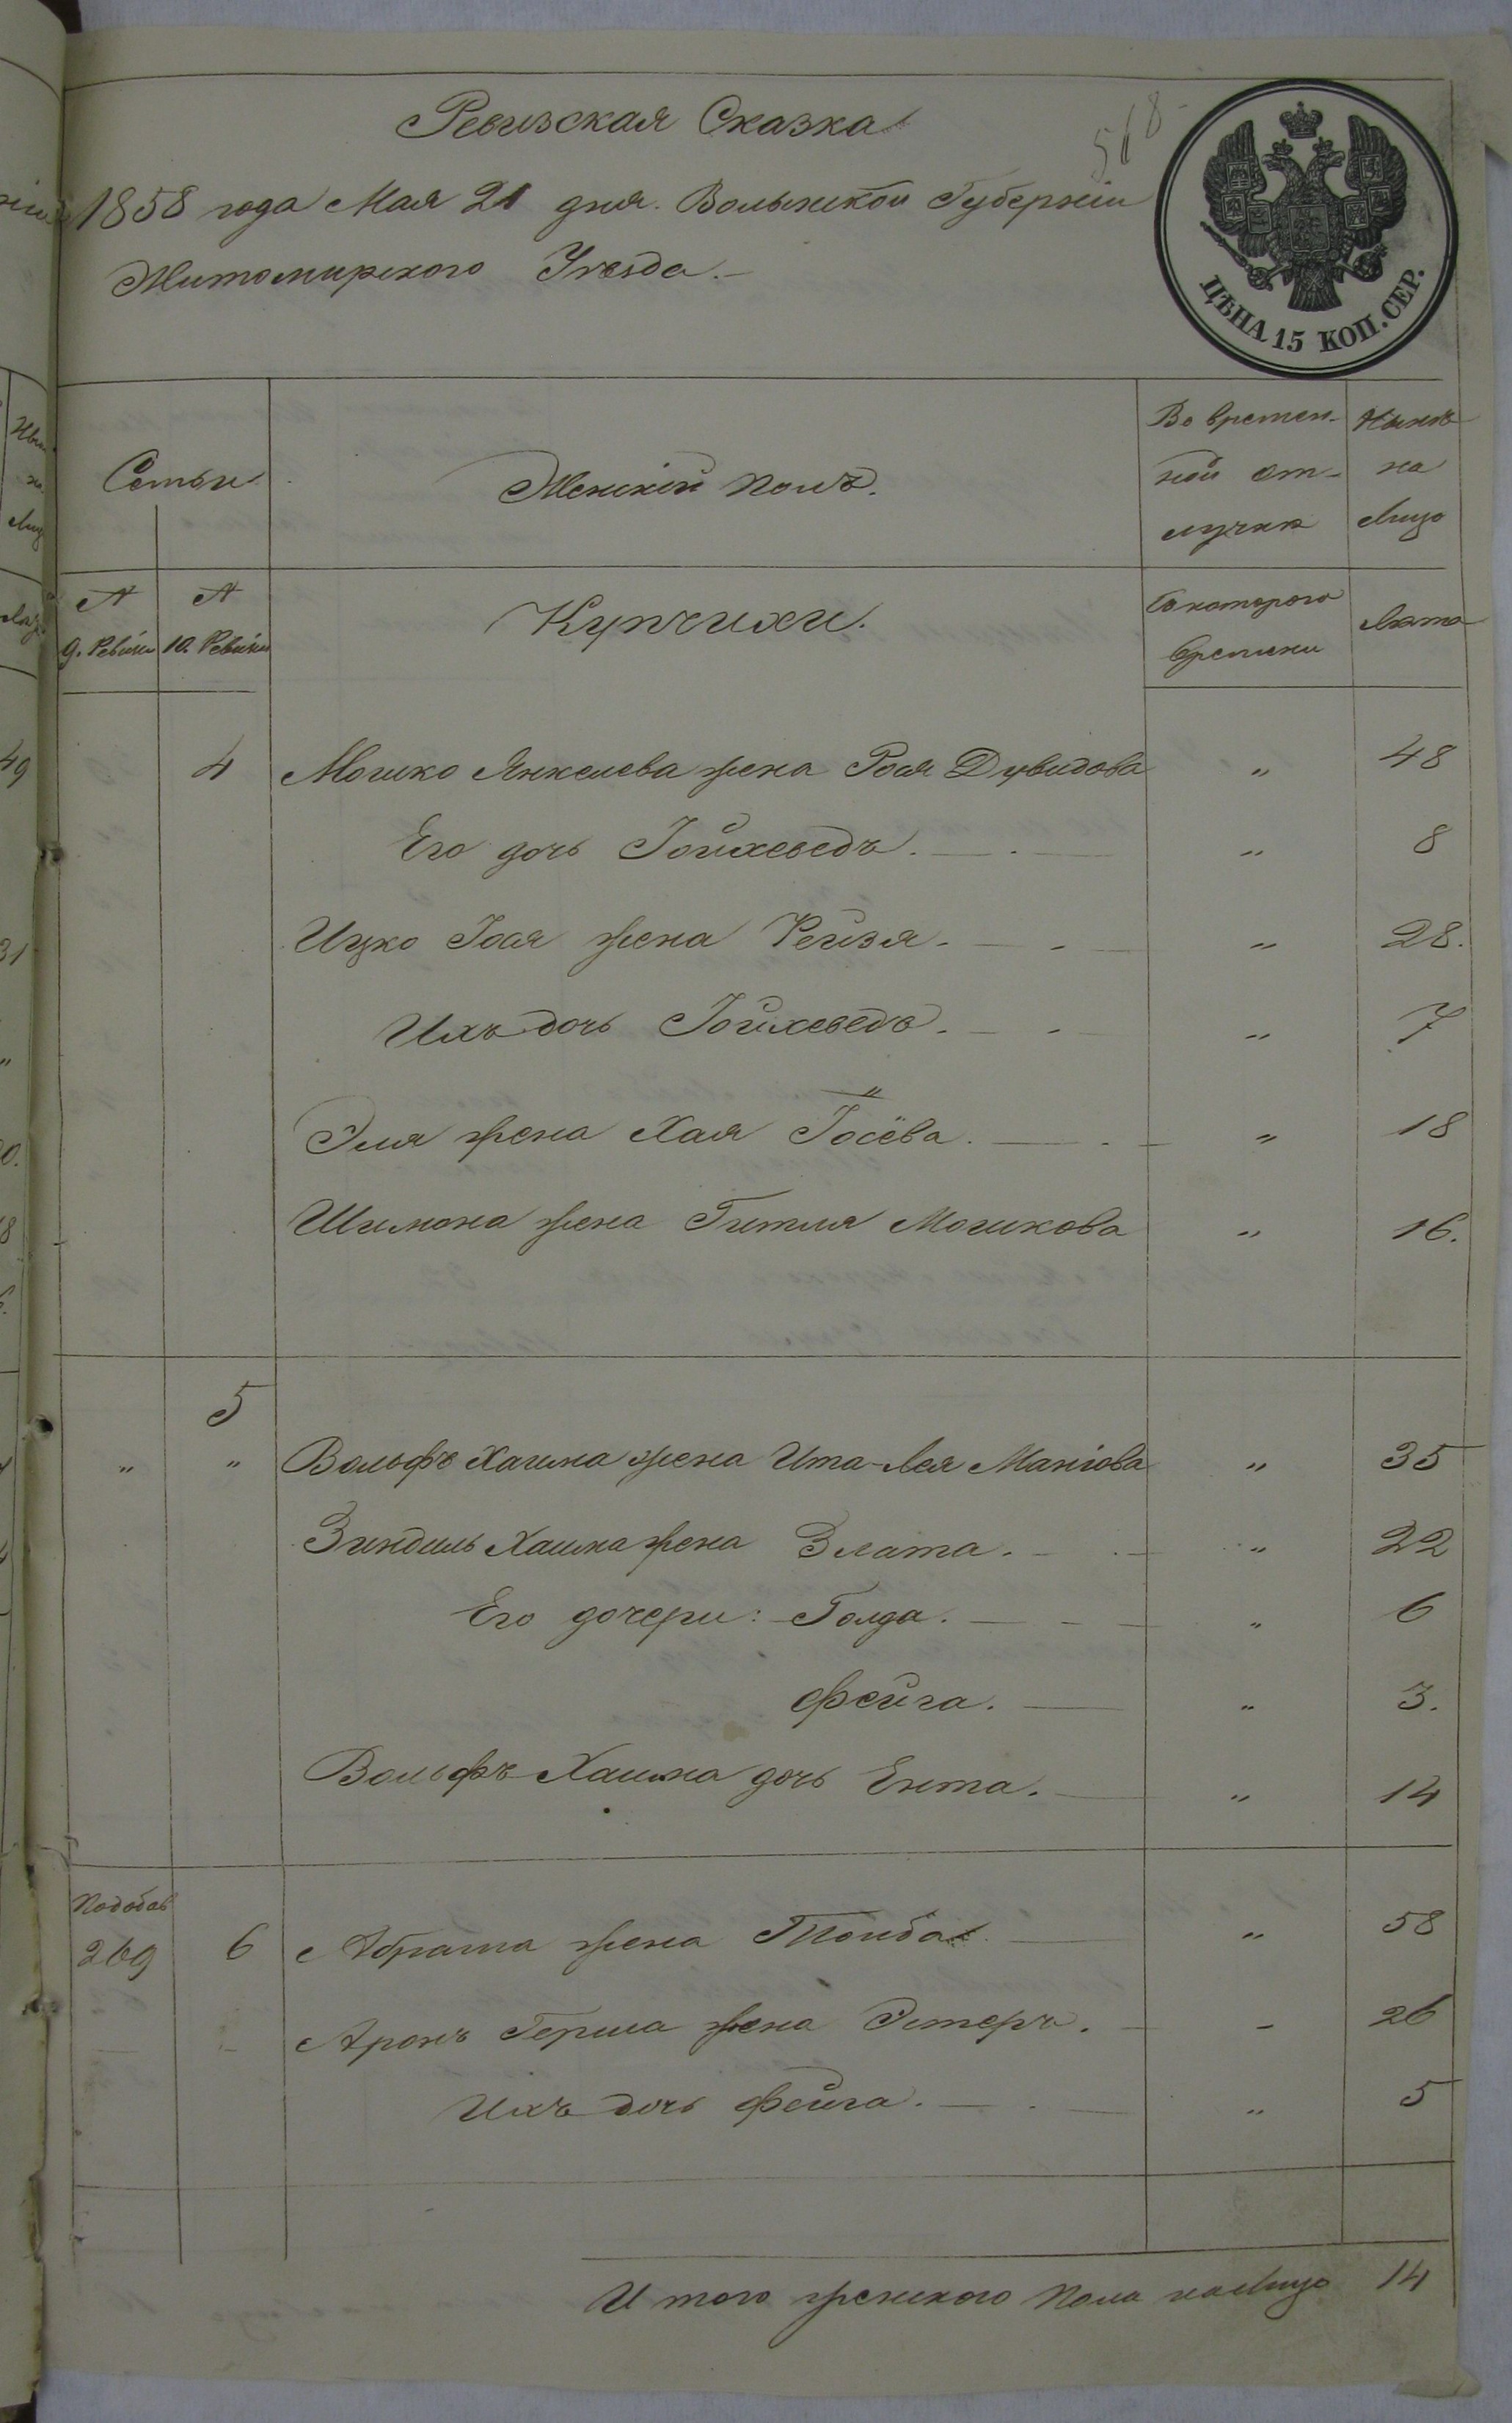 Ревизская Сказка
518
1858 года Мая 21 дня. Волынской Губерніи
Житомирского Уезда.
ЦѢНА 15 КОП. СЕР.
Семьи
Женскій полъ.
Во времен-
ной от-
лучкѣ
Нынѣ
на
Лицо
№
9. Ревизіи
№
10. Ревизіи
Купчихи.
Съ котораго
времени
Лѣта
4 Мошко Янкелева жена Рося Дувидова " 48
Его дочь Іойхеведъ. " 8
Ицко Іося жена Рейзя. " 28.
Ихъ дочь Іойхеведъ. " 7
Эля жена Хая Іосёва. " 18
Шимона жена Гитля Мошкова " 16.
5
" " Вольфъ Хаима жена Ита-Лея Маніова " 35
Зиндиль Хаима жена Злата. " 22
Его дочери: Голда. " 6
Фейга. " 3.
Вольфъ Хаима дочь Ента. " 14
Подобав
269 6 Абрама жена Тойба. " 58
Аронъ Герша жена Эстеръ. - 26
Ихъ дочь Фейга. " 5
Итого женского пола налицо 14